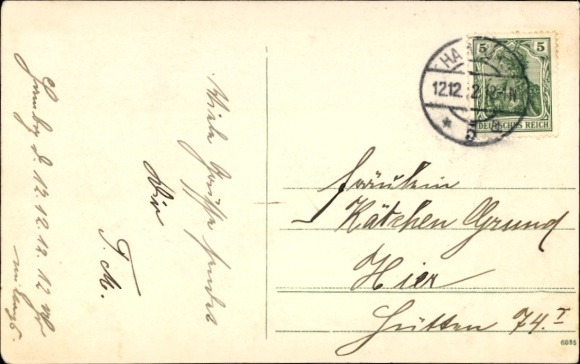 Hamburg d. 12.12.12. 12 Uhr
mittags.
Viele Grüße sendet
Dir
F. M.
HA
12.12.12
* 5
5 5
DEUTSCHES REICH
Fräulein
Kätchen Grund
Hier
Hütten 74. I
6085